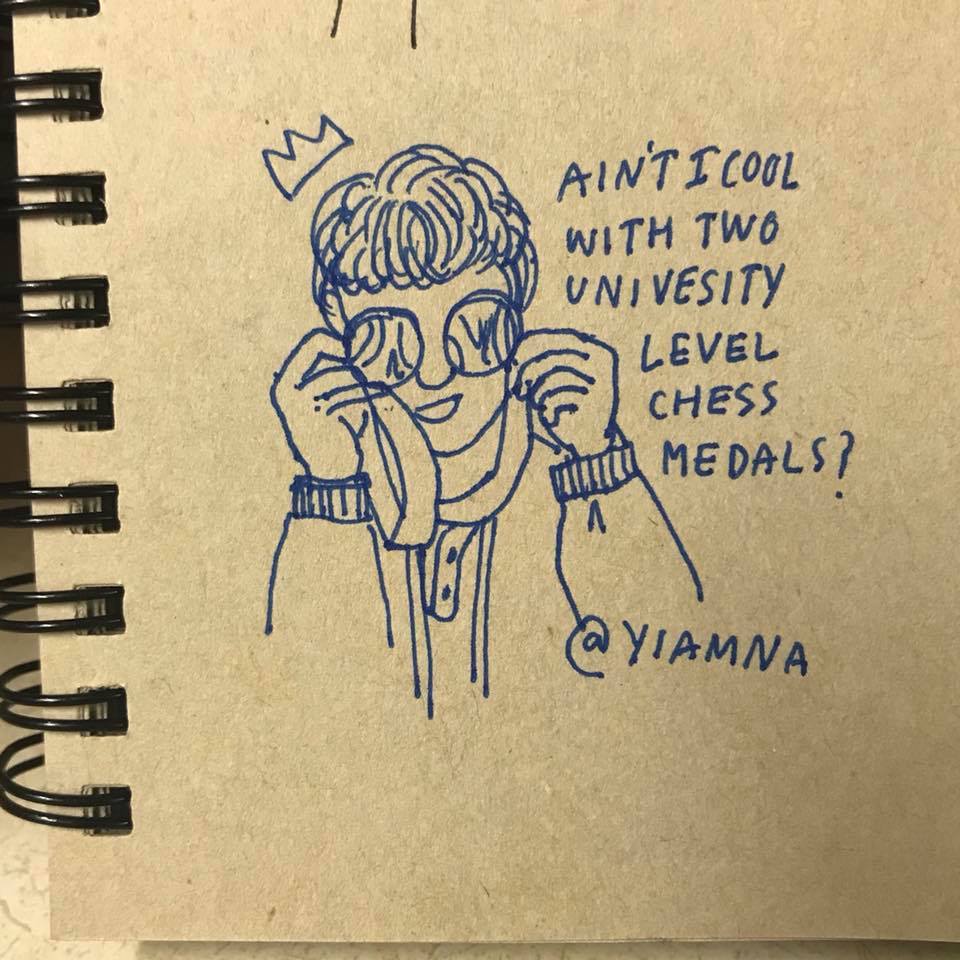 AIN'T I COOL
WITH TWO
UNIVESITY
LEVEL
CHESS
MEDALS?
@YIAMNA